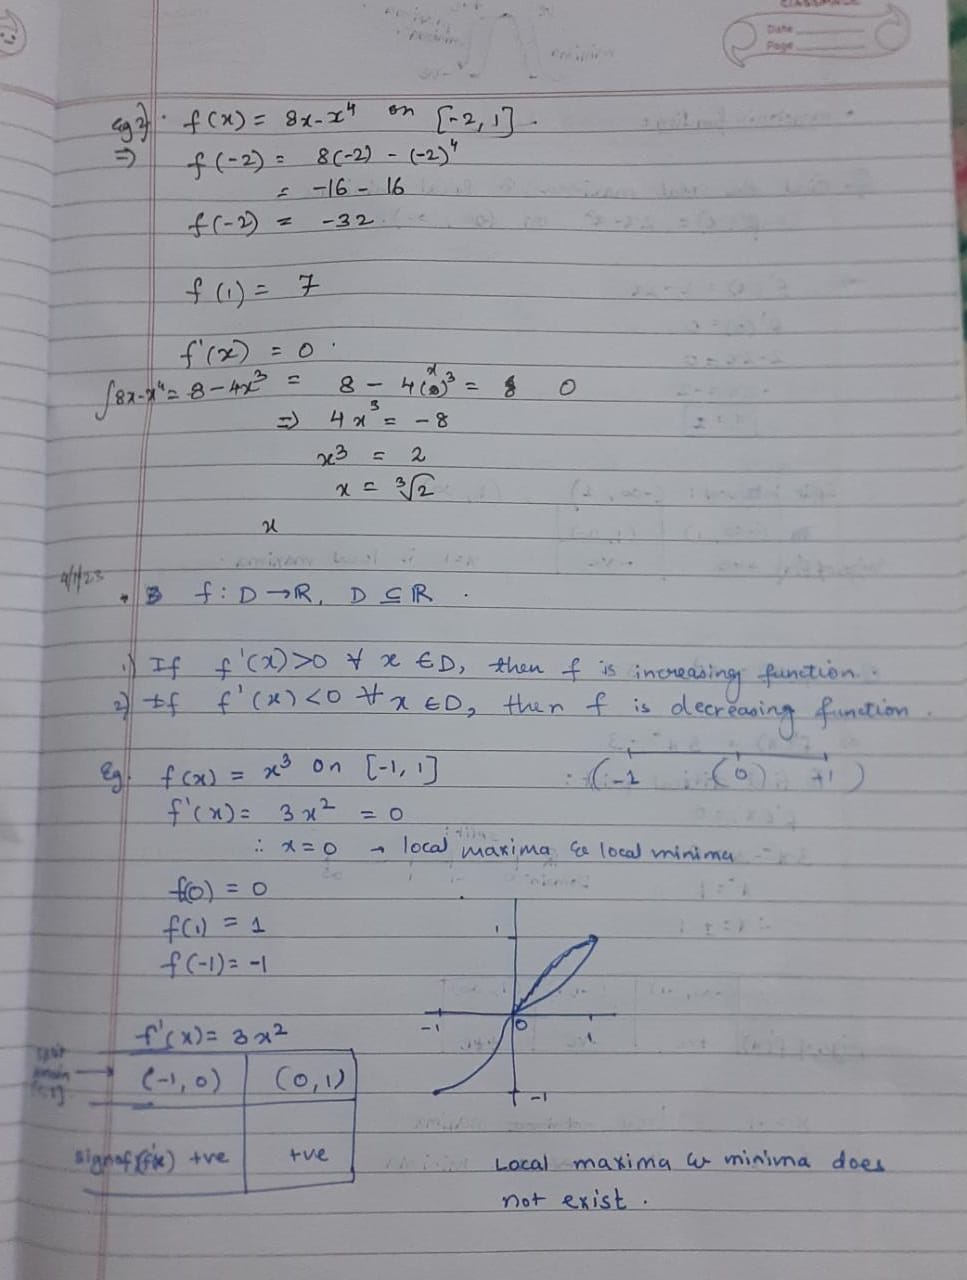 CLASSMATE
Date
Page
Eg 2) f(x) = 8x-x⁴ on [-2, 1].
⇒ f(-2) = 8(-2) - (-2)⁴
= -16 - 16
f(-2) = -32
f(1) = 7
f'(x) = 0
∫8x-x⁴ = 8-4x³ = 8 - 4(x)³ = 0
⇒ 4x³ = -8
x³ = 2
x = ∛2
x
4/1/23
f: D→R, D ⊆ R.
1) If f'(x)>0 ∀ x ∈D, then f is increasing function.
2) If f'(x)<0 ∀ x ∈D, then f is decreasing function.
Eg. f(x) = x³ on [-1, 1] (-1 (0) +1)
f'(x) = 3x² = 0
∴ x=0 → local maxima & local minima
f(0) = 0
f(1) = 1
f(-1) = -1
1
-1 0 1
-1
f'(x) = 3x²
(-1, 0) (0, 1)
sign of f'(x) +ve +ve
Local maxima & minima does
not exist.